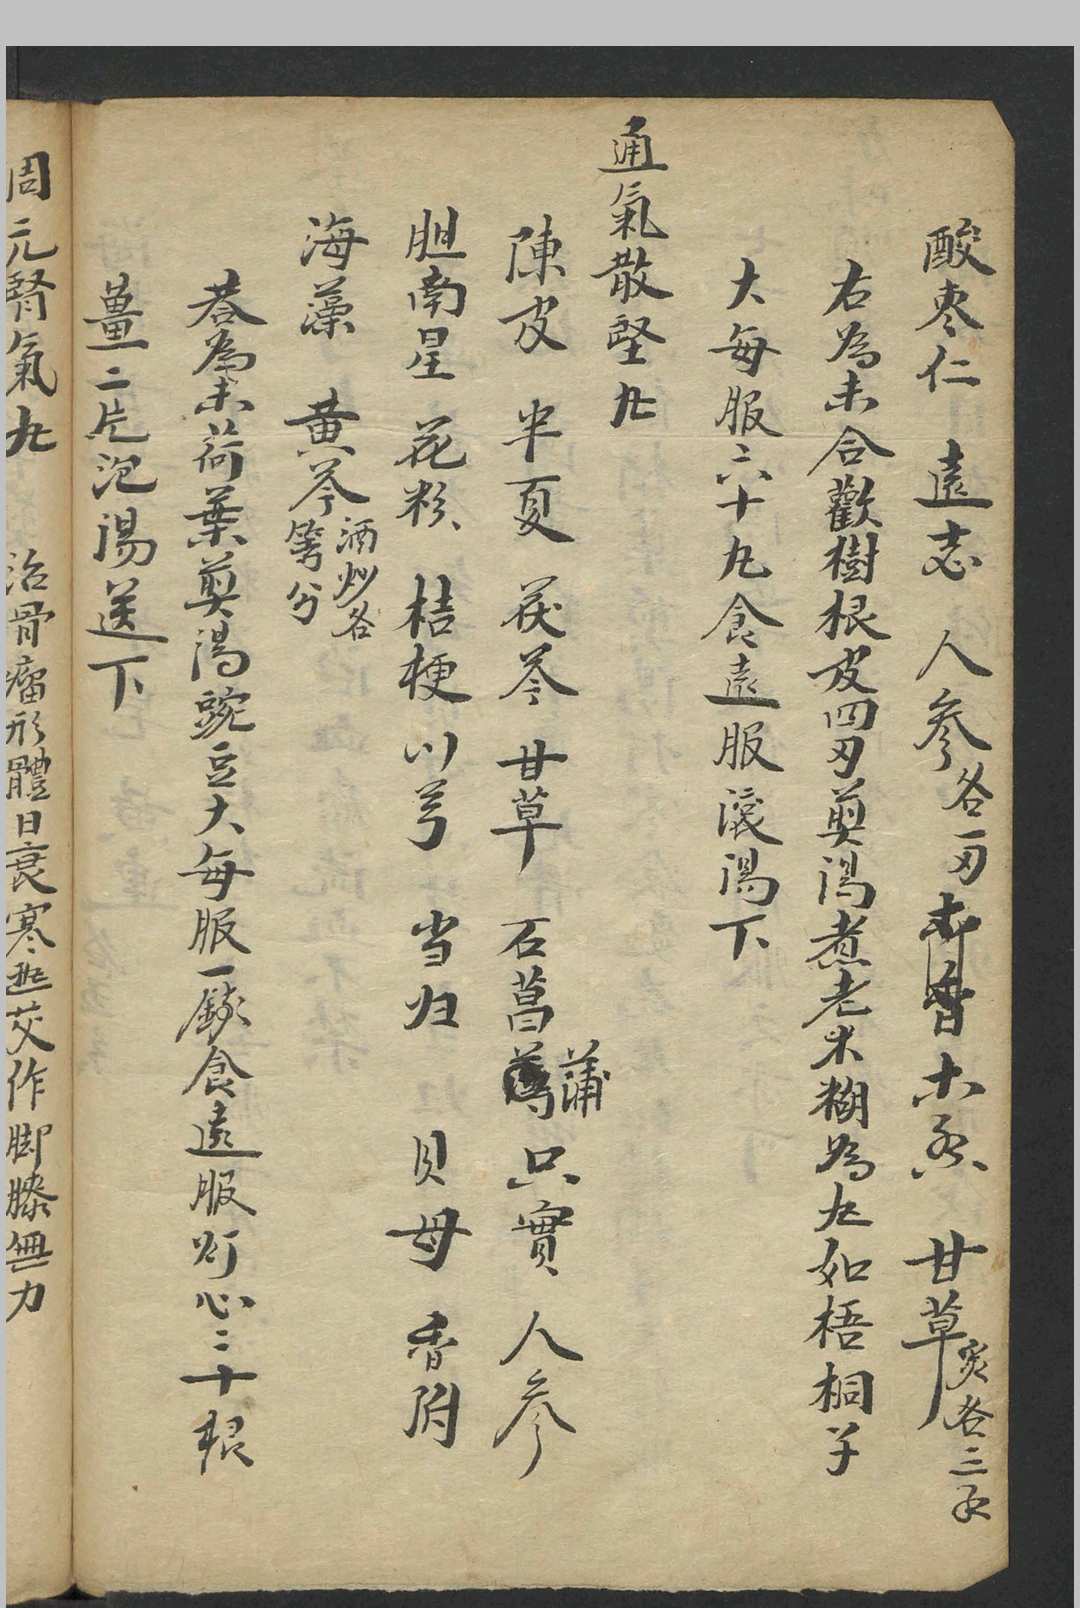 酸枣仁 遠志 人參各一刃 木香 甘草炙各三子
右為末合歡樹根皮四刃煎湯煮老米糊為丸如梧桐子
大每服六十丸食遠服滾湯下
通氣散堅丸
陳皮 半夏 茯苓 甘草 石菖蒲 只實 人參
胆南星 花粉 桔梗 川芎 当归 貝母 香附
海藻 黄芩酒炒各等分
苍為末荷葉煎湯豌豆大每服一錢食遠服灯心二十根
薑二片泡湯送下
周元腎氣丸 治骨瘤形體日衰寒熱交作脚膝無力